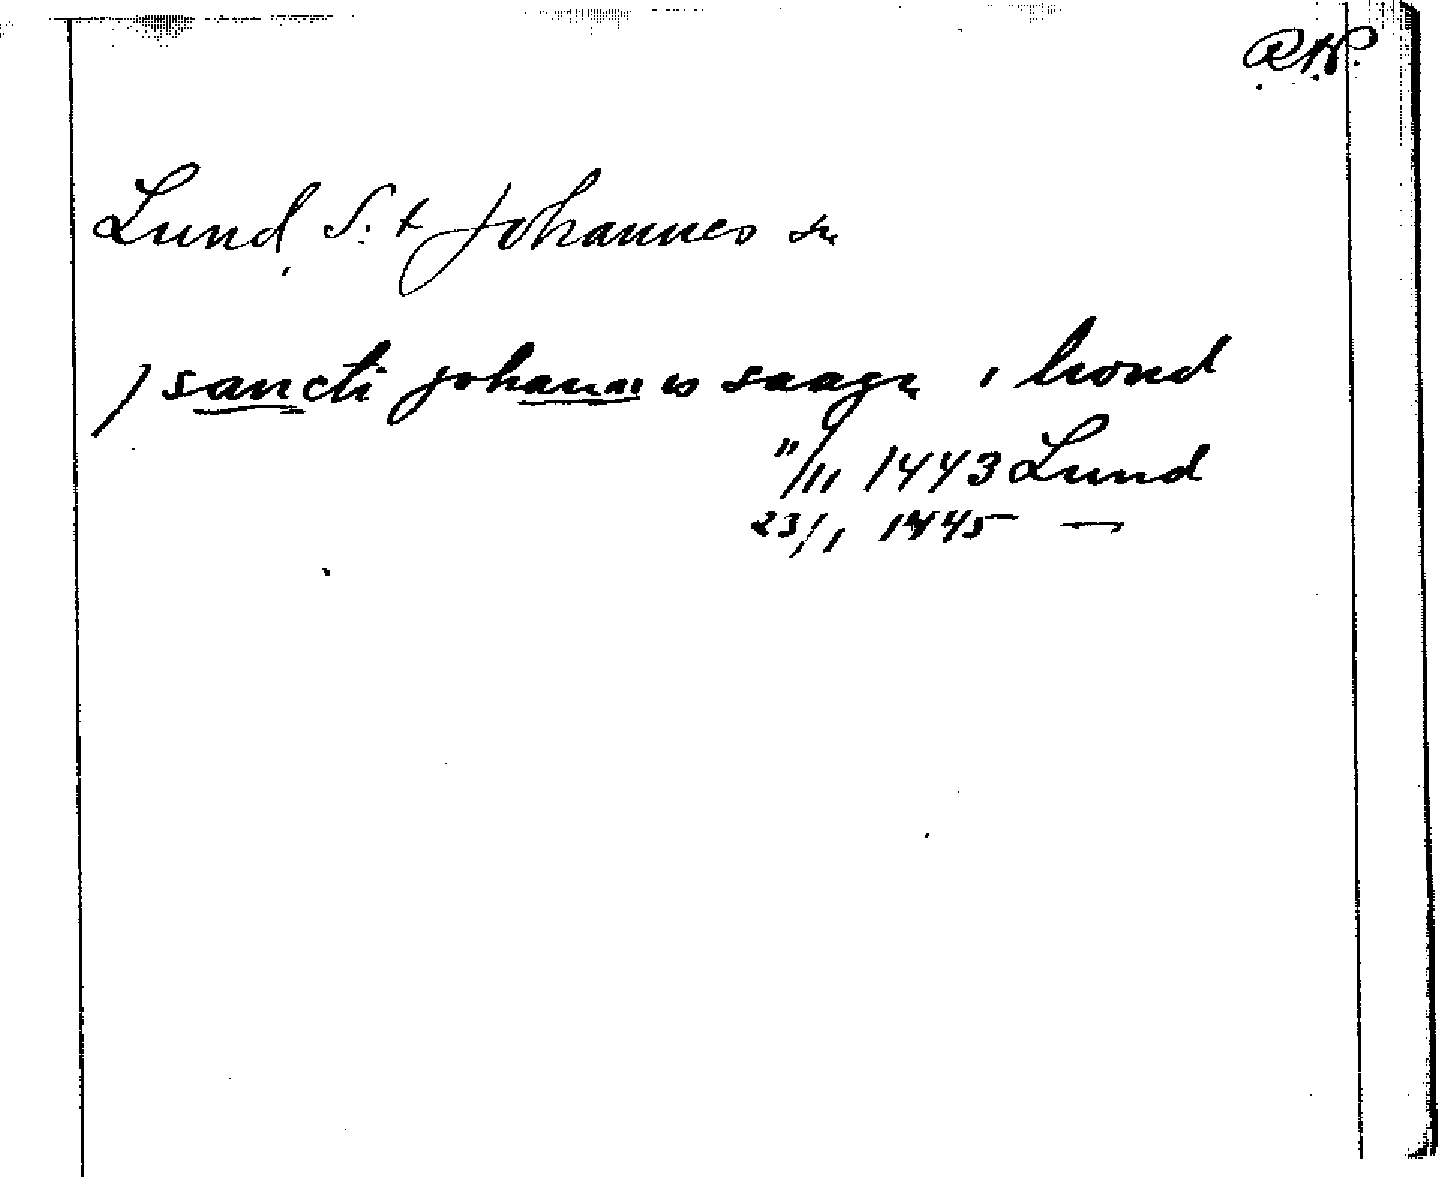 RAP.
Lund, S:t Johannes sn
/ sancti johannis saagn i lwnd
11/11 1443 Lund
23/1 1445 —